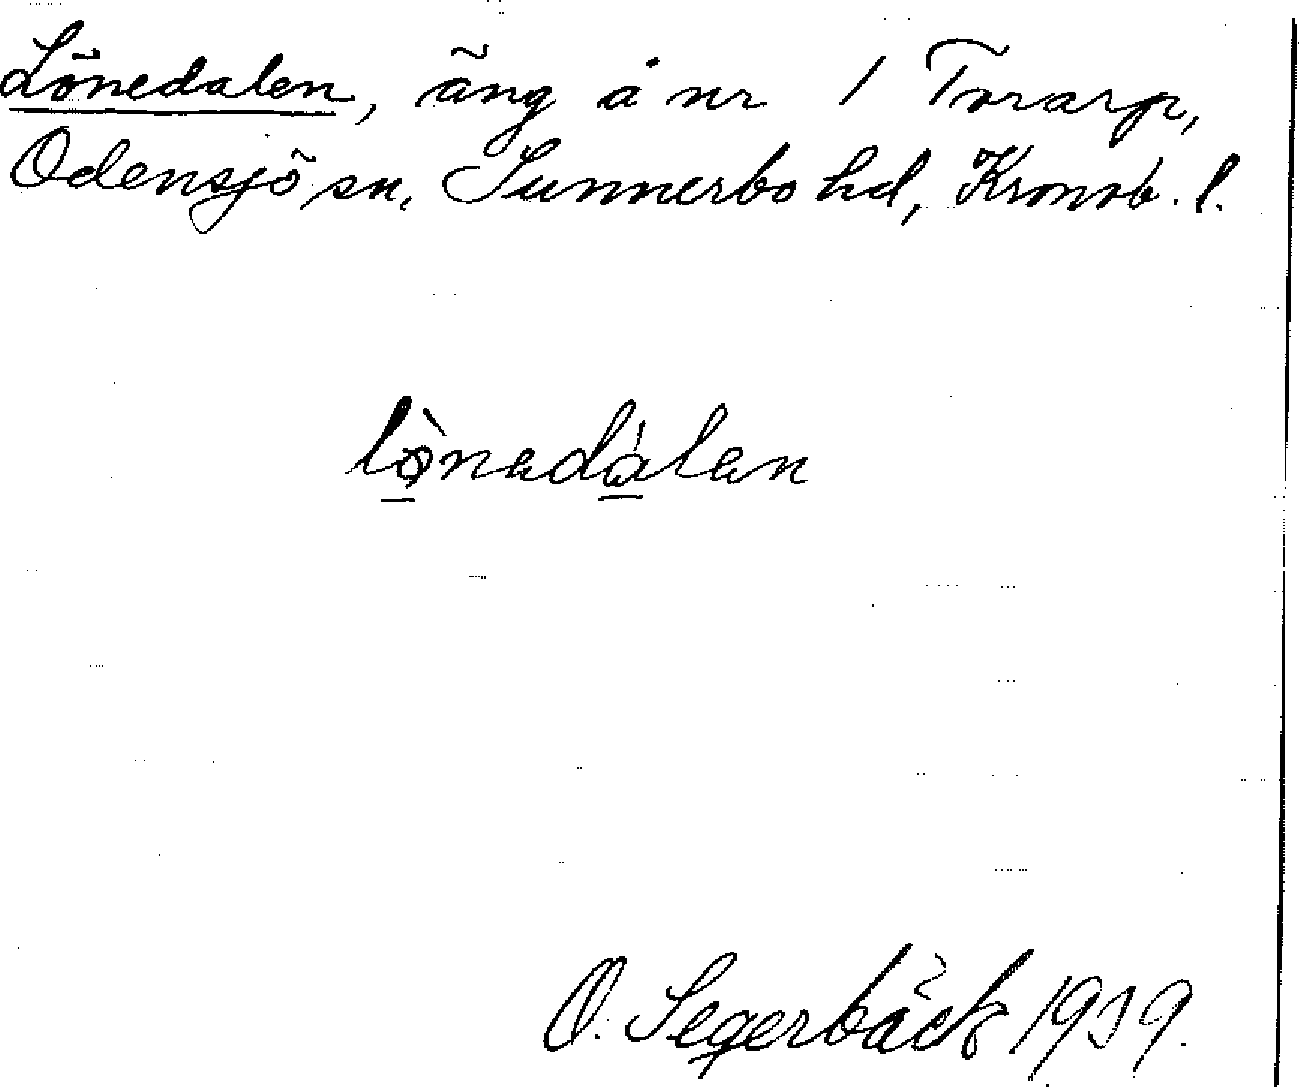 Lönedalen, äng å nr 1 Torarp,
Odensjö sn, Sunnerbo hd, Kronob. l.
lò̱nedá̱len
O. Segerbäck 1939.